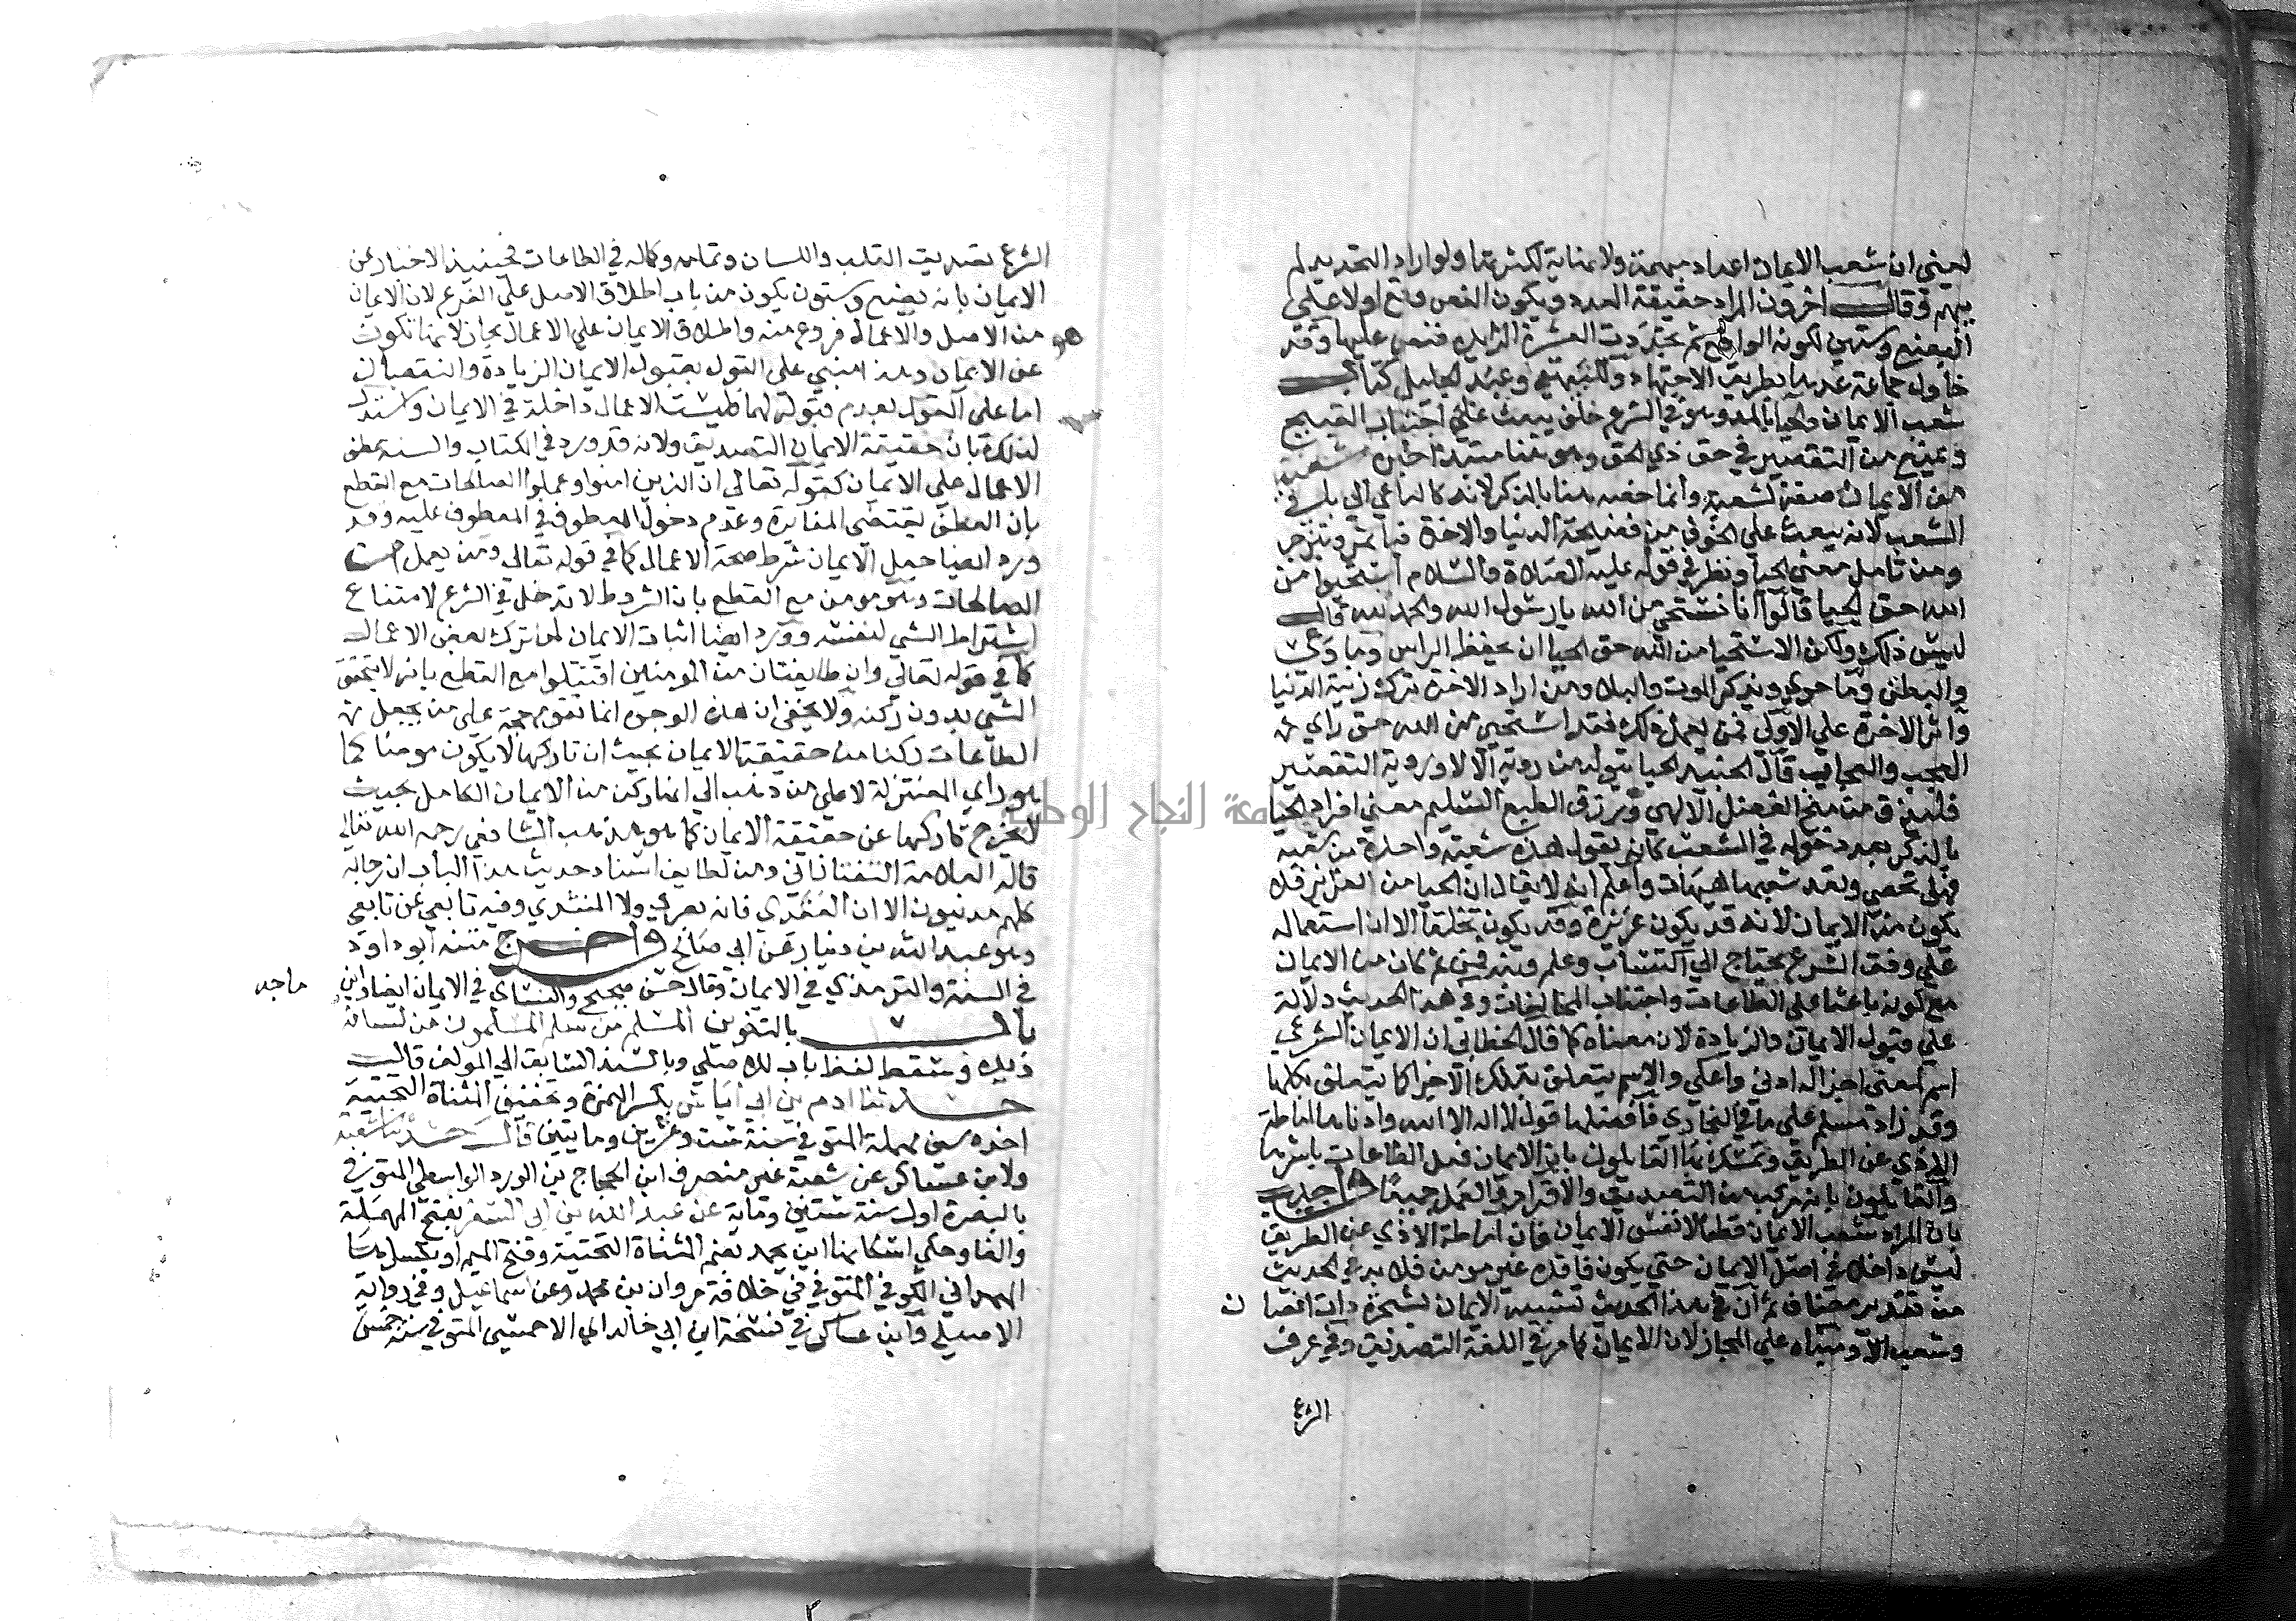 يعني ان شعب الايمان اعداد مبهمة ولا نهاية لكثرتها ولو اراد التحديد لم
يبهم وقال اخرون المراد حقيقة العدد ويكون النص وقع اولا على
البضع وستين لكونه الواقع ثم تجددت العشرة الزايدة فنص عليها وقد
حاول جماعة عدها بطريق الاجتهاد وللبيهقي وعبد الجليل كتاب
شعب الايمان والحيا بالمد وهو في الشرع خلق يبعث على اجتناب القبيح
ويمنع من التقصير في حق ذي الحق وهو هنا مبتدا خبره شعبة
من الايمان صفة لشعبة وانما خصه هنا بالذكر لانه كالداعي الي باقي
الشعب لانه يبعث على الخوف من فضيحة الدنيا والاخرة فياتمر وينزجر
ومن تامل معني الحيا ونظر في قوله عليه الصلاة والسلام استحيوا من
الله حق الحيا قالوا انا نستحي من الله يا رسول الله والحمد لله قال
ليس ذلك ولكن الاستحيا من الله حق الحيا ان يحفظ الراس وما وعى
والبطن وما حوي ويذكر الموت والبلا ومن اراد الاخرة ترك زينة الدنيا
واثر الاخرة علي الاولي فمن يعمل ذلك فقد استحيي من الله حق راي
العجب والعجايب قال الجنيد الحيا يتولد من روية الالا وروية التقصير
فليذق من منح الفضل الالهي ورزق الطبع السليم معني افراد الحيا
بالذكر بعد دخوله في الشعب كانه يقول هذه شعبة واحدة من شعبه
فهل تحصي وتعد شعبها هيهات واعلم انه لا يقال ان الحيا من الغرايز فلا
يكون من الايمان لانه قد يكون غريزة وقد يكون تخلقا الا ان استعماله
علي وفق الشرع يحتاج الي اكتساب وعلم ونية فمن ثم كان من الايمان
مع كونه باعثا على الطاعات واجتناب المخالفات وفي هذا الحديث دلالة
علي قبول الايمان والزيادة لان معناه كما قال الخطابي ان الايمان الشرعي
اسم لمعني اجزا له ادني واعلي والاسم يتعلق بتلك الاجزا كما يتعلق بكلها
وقد زاد مسلم على ما في البخاري فافضلها قول لا اله الا الله وادناها اماطة
الاذي عن الطريق وتمسك بها القايلون بان الايمان فعل الطاعات باسرها
والقايلون بانه مركب من التصديق والاقرار والعمل جميعا واجيب
بان المراد شعب الايمان قطعا لا نفس الايمان فان اماطة الاذي عن الطريق
ليس داخلا في اصل الايمان حتي يكون فاقده غير مومن فلا بد في الحديث
من تقدير مضاف ثم ان في هذا الحديث تشبيه الايمان بشجرة ذات اغصان
وشعب الا ومبناه علي المجاز لان الايمان كما مر في اللغة التصديق وفي عرف
الشرع
الشرع تصديق القلب واللسان وتمامه وكماله في الطاعات فحينيذ الاخبار عن
الايمان بانه بضع وستون يكون من باب اطلاق الاصل علي الفرع لان الايمان
هو
من الاصل والاعمال فروع منه واطلاق الايمان علي الاعمال مجاز لانها تكون
عن الايمان وهذا مبني علي القول بقبول الايمان الزيادة والنقصان
اما على القول بعدم قبوله لهما فليست الاعمال داخلة في الايمان واستدل
لذلك بان حقيقة الايمان التصديق ولانه قد ورد في الكتاب والسنة عطف
الاعمال علي الايمان كقوله تعالي ان الذين امنوا وعملوا الصالحات مع القطع
بان العطف يقتضي المغايرة وعدم دخول المعطوف في المعطوف عليه وقد
ورد ايضا جعل الايمان شرط صحة الاعمال كما في قوله تعالي ومن يعمل من
الصالحات وهو مومن مع القطع بان الشروط لا تدخل في الشرع لامتناع
اشتراط الشي لنفسه وورد ايضا اثبات الايمان لمن ترك بعض الاعمال
كما في قوله تعالي وان طايفتان من المومنين اقتتلوا مع القطع بانه لا يتحقق
الشي بدون ركنه ولا يخفي ان هذه الوجوه انما تقوم حجة علي من يجعل
الطاعات ركنا من حقيقة الايمان بحيث ان تاركها لا يكون مومنا كما
هو راي المعتزلة لا علي من ذهب الي انها ركن من الايمان الكامل بحيث
لا يخرج تاركها عن حقيقة الايمان كما هو مذهب الشافعي رحمه الله تعالي
قاله العلامة التفتازاني ومن لطايف اسناد حديث هذا الباب ان رجاله
كلهم مدنيون الا ان العقدي فانه بصري والا المسندي وفيه تابعي عن تابعي
وهو عبد الله بن دينار عن ابي صالح واخرج متنه ابو داود
في السنة والترمذي في الايمان وقال حسن صحيح والنسائ في الايمان ايضا وابن
ماجه
باب بالتنوين المسلم من سلم المسلمون من لسانه
ويده وسقط لفظ باب للاصيلي وبالسند السابق الي المولف قال
حدثنا ادم بن ابي اياس بكسر الهمزة وتخفيف المثناة التحتية
اخره سين مهملة المتوفي سنة عشرين ومايتين قال حدثنا شعبة
ولابن عساكر عن شعبة غير منصرف ابن الحجاج بن الورد الواسطي المتوفي
بالبصرة اول سنة ستين وماية عن عبد الله بن ابي السفر بفتح المهملة
والفا وحكي اسكانها ابن يحمد بضم المثناة التحتية وفتح الميم او بكسرها
الهمداني الكوفي المتوفي في خلافة مروان بن محمد وعن اسماعيل وفي رواية
الاصيلي وابن عساكر في نسخة ابن ابي خالد اي الاحمسي المتوفي سنة خمس
جامعة النجاح الوطنية